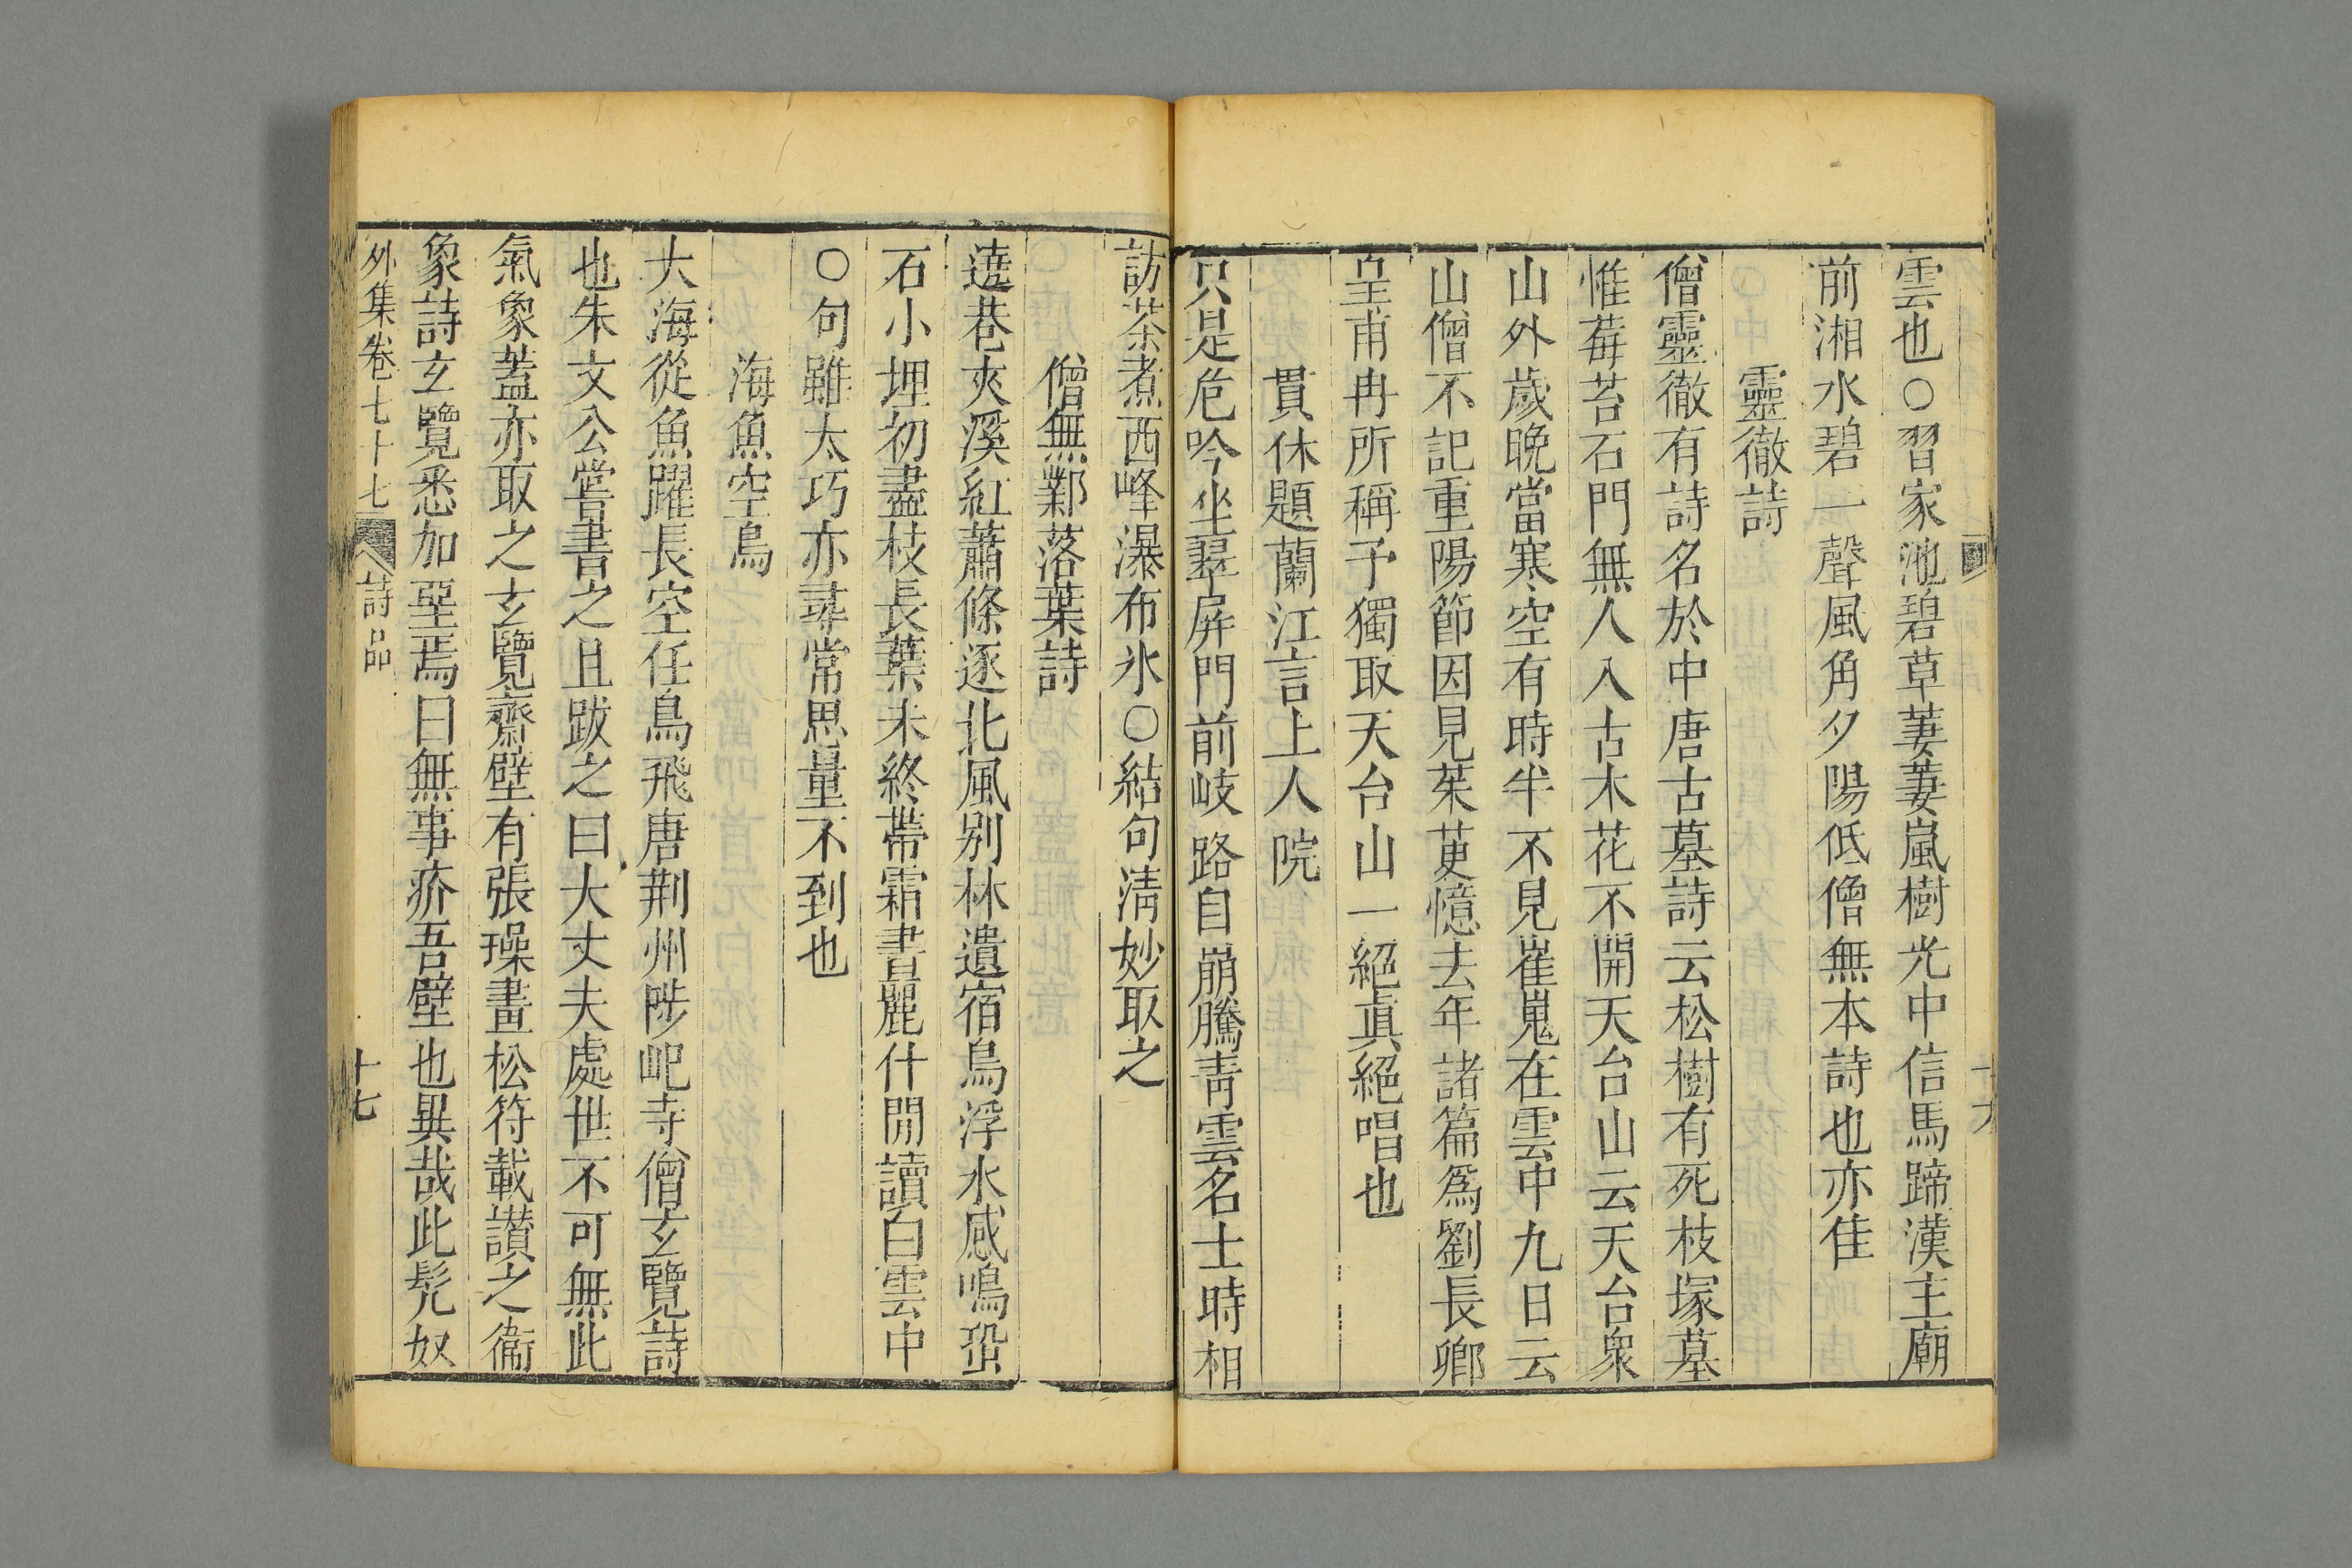 雲也○習家池碧草萋萋嵐樹光中信馬蹄漢主廟
前湘水碧一聲風角夕陽低僧無本詩也亦佳
靈徹詩
僧靈徹有詩名於中唐古墓詩云松樹有死枝塚墓
惟莓苔石門無人入古木花不開天台山云天台衆
山外歲晚當寒空有時半不見崔嵬在雲中九日云
山僧不記重陽節因見茱萸憶去年諸篇爲劉長卿
皇甫冉所稱予獨取天台山一絕眞絕唱也
貫休題蘭江言上人院
只是危吟坐翠屏門前岐路自崩騰靑雲名士時相
訪茶煮西峰瀑布氷○結句淸妙取之
僧無鄴落葉詩
遶巷夾溪紅蕭條逐北風别林遺宿鳥浮水感鳴蛩
石小埋初盡枝長葉未終帶霜書麗什閒讀白雲中
○句雖太巧亦尋常思量不到也
海魚空鳥
大海從魚躍長空任鳥飛唐荆州陟屺寺僧玄覽詩
也朱文公嘗書之且跋之曰大丈夫處世不可無此
氣象蓋亦取之玄覽齋壁有張璪畫松符載讃之衞
象詩玄覽悉加堊焉曰無事疥吾壁也異哉此髠奴
外集卷七十七 詩品 十七